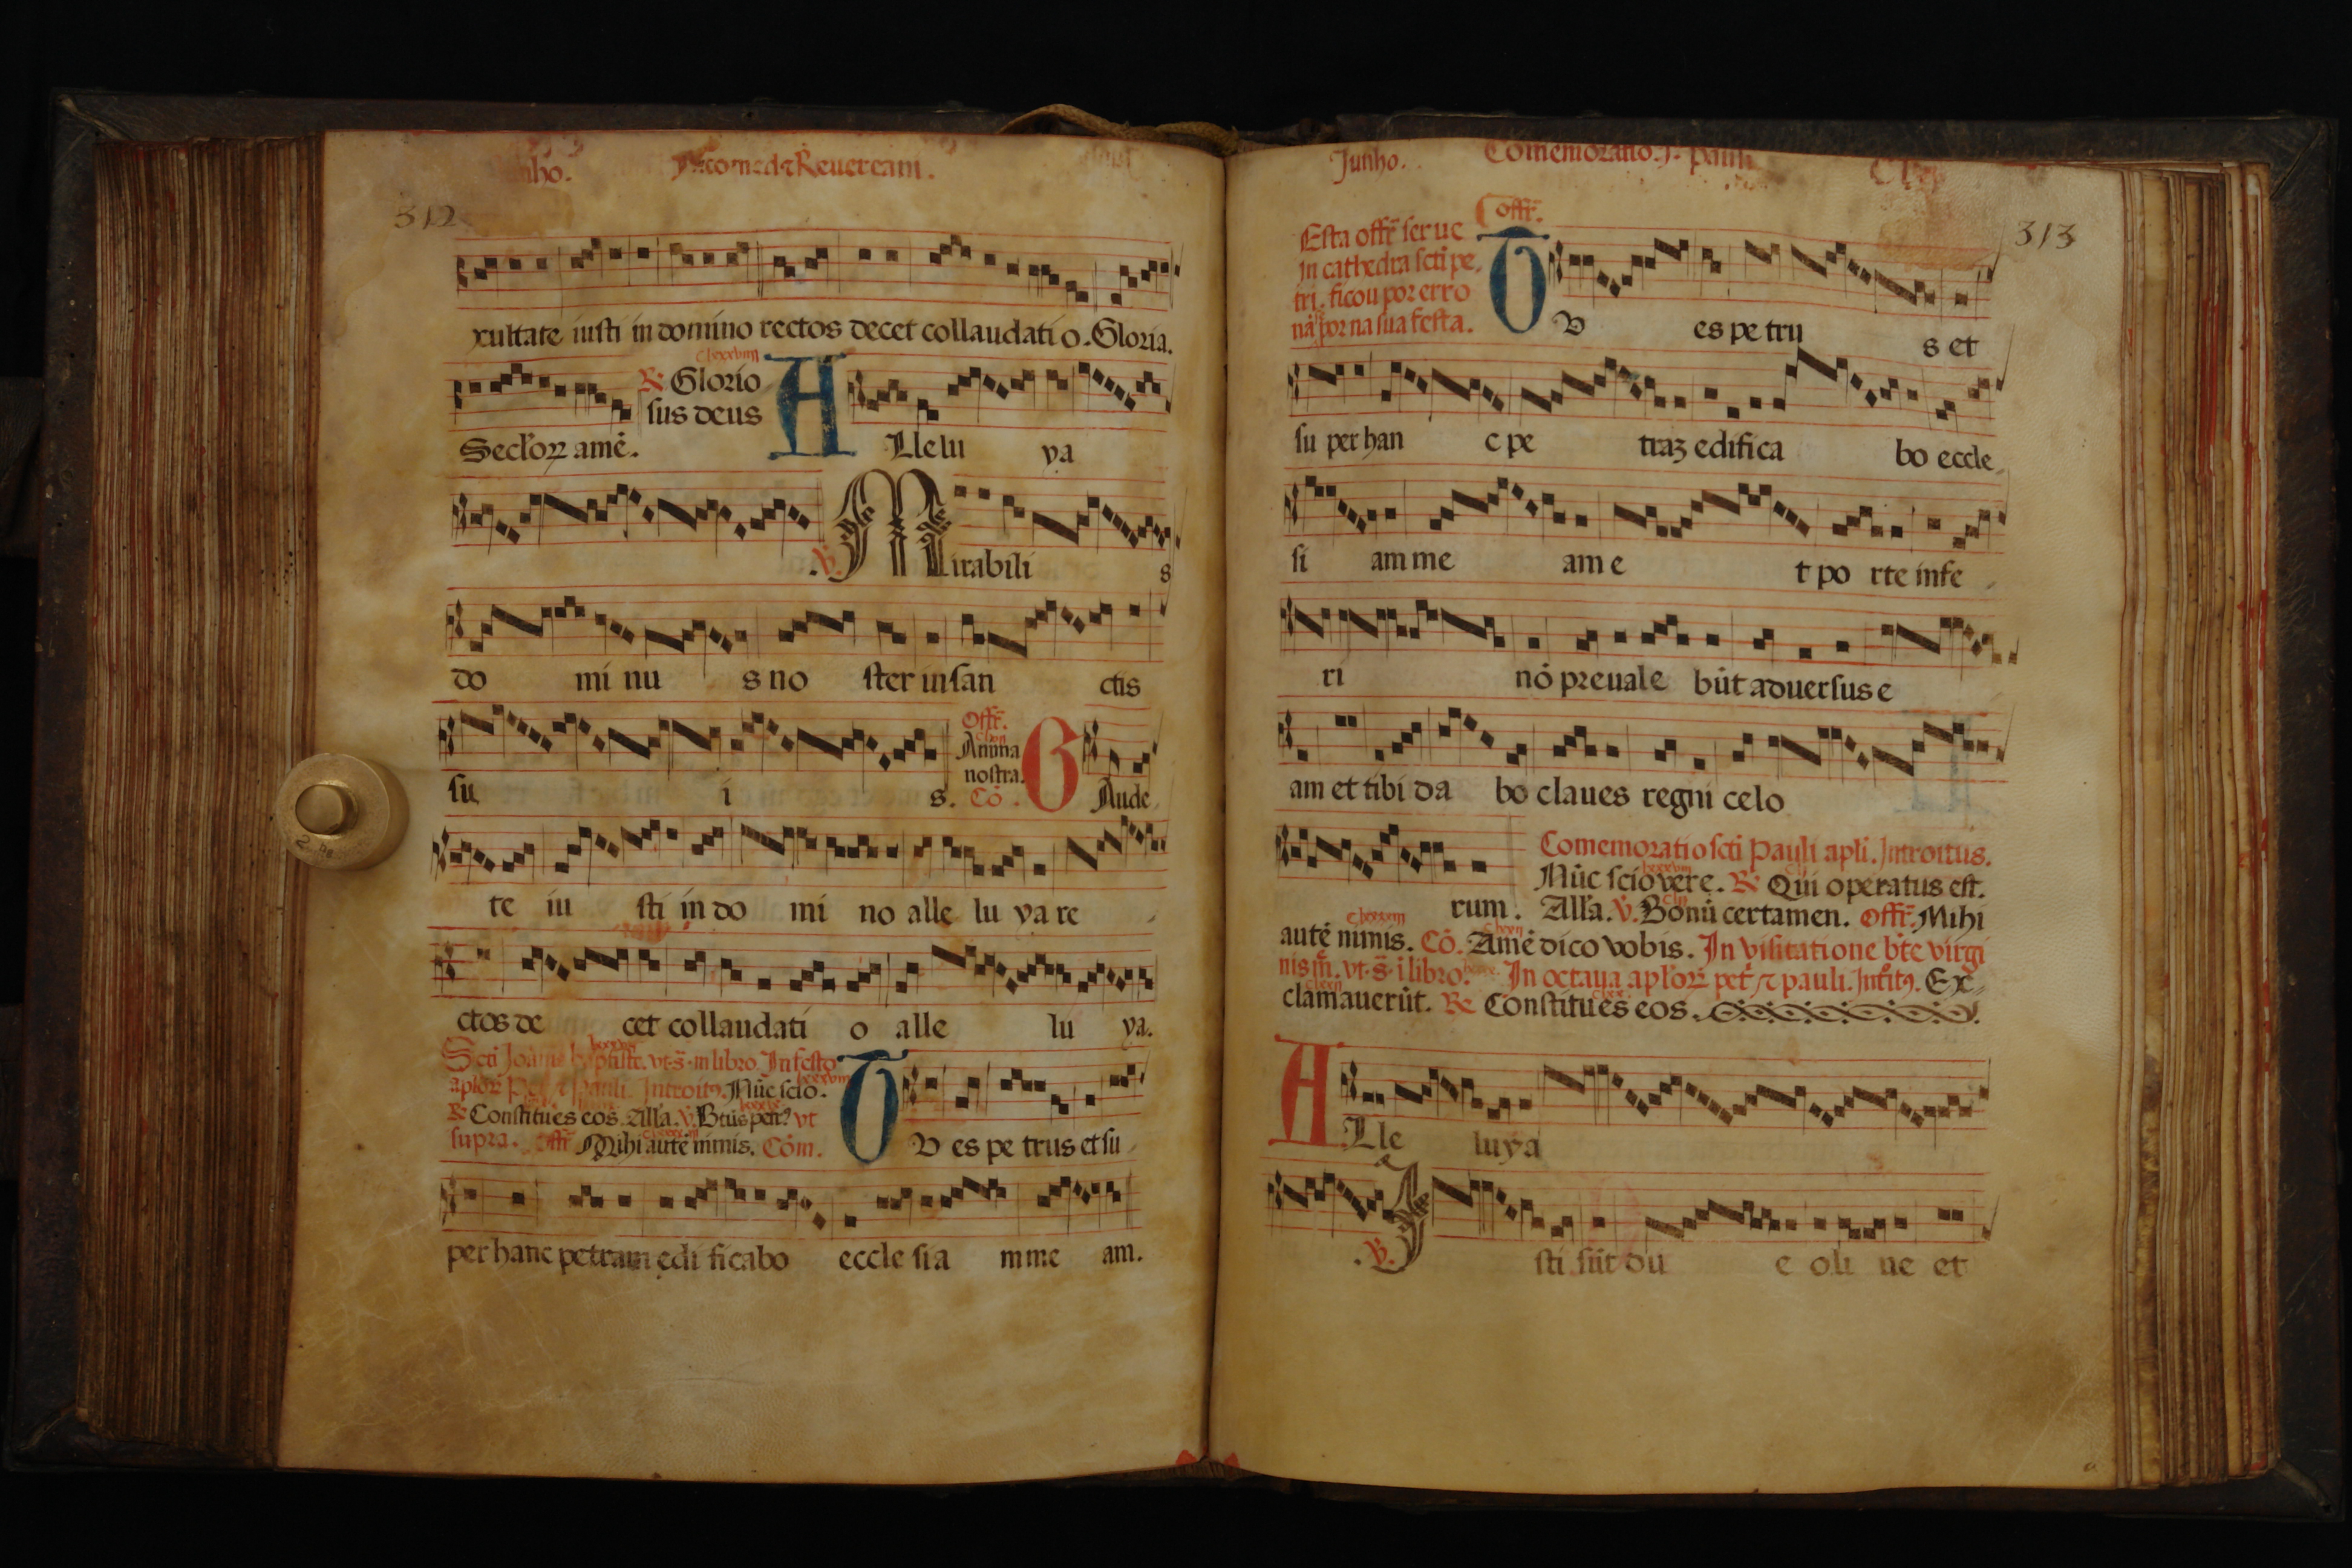 nho. Nicomed ⁊ Reuerciani.
312
xultate iusti in domino rectos decet collaudati o. Gloria.
clxxxviij
Secl'oꝝ amē. ℟ Glorio
sus deus
ALlelu ya
℣. Mirabili s
do mi nu s no ster in san ctis
su i s. Offr̄.
Anima
nostra. Cō. GAude
te iu sti in do mi no alle lu ya re
ctos de cet collaudati o alle lu ya.
Scti Joānis baptiste. vt.s̄. in libro. In festo
aploꝝ Pet ⁊ Pauli. Introitꝰ. Nūc scio.
℟ Constitues eos. Alla. ℣. Btūs petr̄ vt
supra. Offr̄ Mihi autē nimis. Cōm.
TV es pe trus et su
per hanc petram edi ficabo eccle sia mme am.
Junho. Comemoratio. s. pauli
313
Offr̄.
Esta offr̄ serue
in cathedra scti pe
tri. ficou por erro
nā por na sua festa.
TV es pe tru s et
su per han c pe traꝫ edifica bo eccle
si am me am e t po rte infe
ri nō preuale būt aduersus e
am et tibi da bo claues regni celo
rum. Comemoratio scti Pauli apli. Introitus.
Nūc scio vere. ℟ Qui operatus est.
Alla. ℣. Bonū certamen. Offr̄. Mihi
autē nimis. Cō. Amē dico vobis. In visitatione bte virgi
nis m̄. vt.s̄. i libro. In octaua aploꝝ pet ⁊ pauli. Intitꝰ. Ex
clamauerūt. ℟ Constitues eos.
ALle luya
℣. Isti sūt du e oli ue et